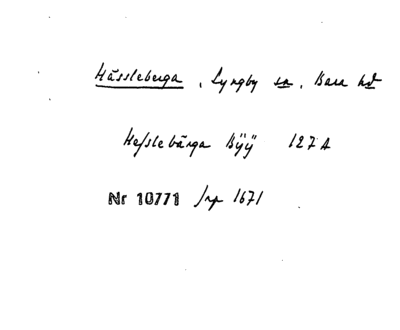 Hässleberga, Lyngby sn, Bara hd
Hesslebärga Bÿÿ 127A
Nr 10771 Jrp 1671